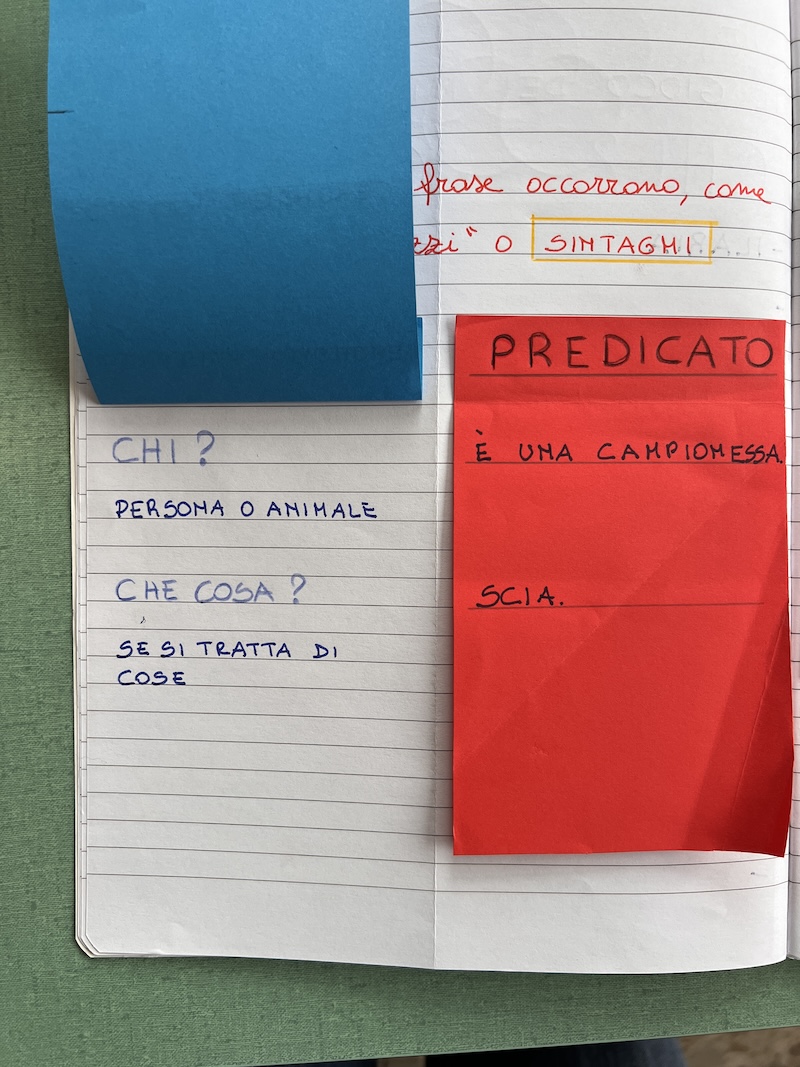 frase occorrono, come
zzi" o SINTAGMI
PREDICATO
CHI?
È UNA CAMPIONESSA.
PERSONA O ANIMALE
CHE COSA?
SCIA.
SE SI TRATTA DI
COSE